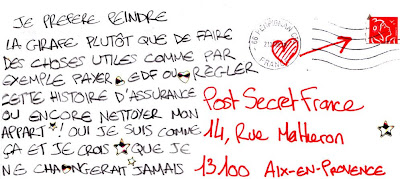 JE PRÉFÈRE PEINDRE
LA GIRAFE PLUTÔT QUE DE FAIRE
DES CHOSES UTILES COMME PAR
EXEMPLE PAYER EDF OU RÉGLER
CETTE HISTOIRE D'ASSURANCE
OU ENCORE NETTOYER MON
APPART! OUI JE SUIS COMME
ÇA ET JE CROIS QUE JE
NE CHANGERAIT JAMAIS
Post Secret France
14, Rue Matheron
13100 AIX-EN-PROVENCE
66 PERPIGNAN
FRANCE